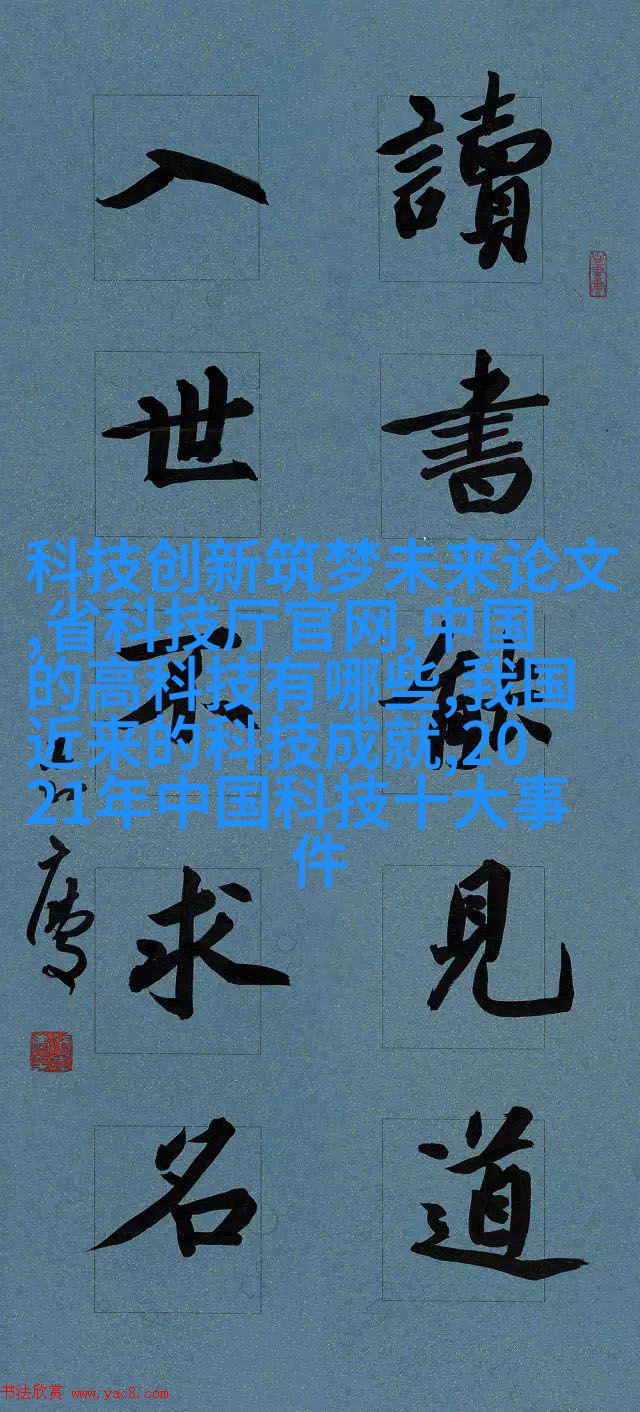 讀書見道
入世不求名
科技创新筑梦未来论文
,省科技厅官网,中国
的高科技有哪些,我国
近来的科技成就,20
21年中国科技十大事
件
书法欣赏 www.yac8.com